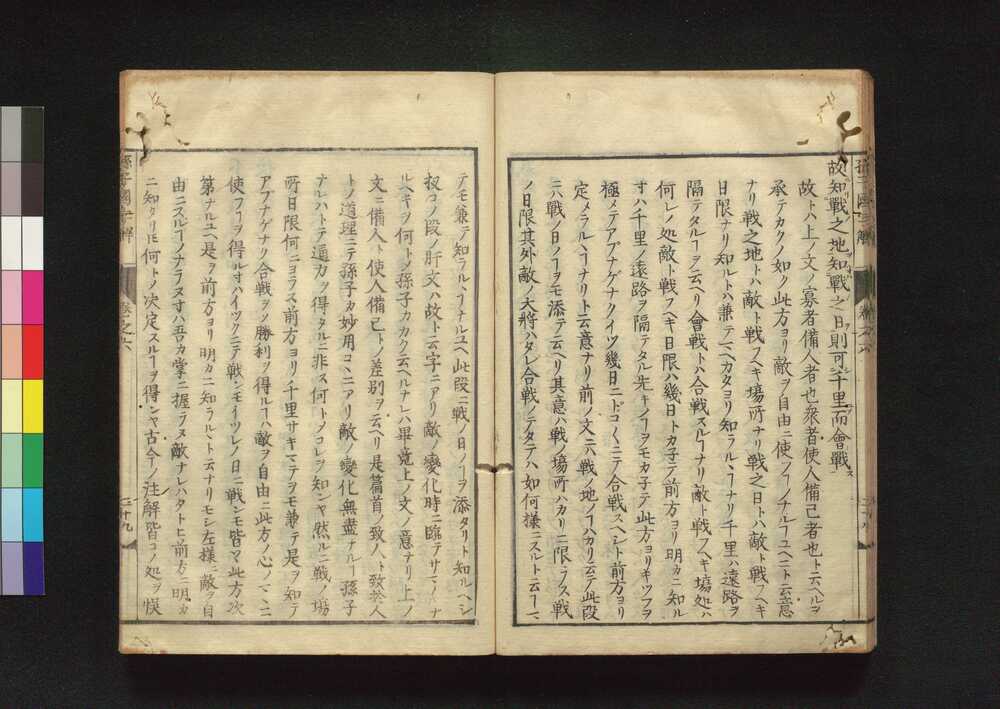 故知戰之地知戰之日則可千里而會戰ス
故トハ上ノ文ノ寡者備人者也衆者使人備己者也ト云ヘルヲ
承テカクノ如ク此方ヨリ敵ヲ自由ニ使フヿノナルユヘニト云意
ナリ戰之地トハ敵ト戰フヘキ場所ナリ戰之日トハ敵ト戰フヘキ
日限ナリ知ルトハ兼テヘカタヨリ知ラルヽヿナリ千里ハ遠路ヲ
隔テタルヿヲ云ヘリ會戰トハ合戰スルヿナリ敵ト戰フヘキ場処ハ
何レノ処敵ト戰フヘキ日限ハ幾日トカ子テ前方ヨリ明カニ知ル
寸ハ千里ノ遠路ヲ隔テタル先キノヿヲモカ子テ此方ヨリキツフヲ
極メテアブナゲナクイツ幾日ニドコ〱ニテ合戰スヘシト前方ヨリ
定メラルヽヿナリト云意ナリ前ノ文ニハ戰ノ地ノヿハカリ云テ此段
ニハ戰ノ日ノヿヲモ添テ云ヘリ其意ハ戰ノ場所ハカリニ限ラス戰
ノ日限其外敵ノ大將ハタレ合戰ノテタテハ如何樣ニスルト云ヿマ
テモ兼テ知ラルヽヿナルユヘ此段ニ戰ノ日ノヿヲ添タリト知ルヘシ
扨コノ段ノ肝文ハ故ト云字ニアリ敵ノ變化時ニ臨テサマ〱ナ
ルヘキヲ何トソ孫子カカク云ヘルナレハ畢竟上ノ文ノ意ナリ上ノ
文ニ備人ト使人備己トノ差別ヲ云ヘリ是篇首ノ致人ト致於人
トノ道理ニテ孫子カ妙用コヽニアリ敵ノ變化無盡ナルヿ孫子
ナレハトテ通力ヲ得タルニ非ス何トメコレヲ知ンヤ然ルニ戰ノ場
所日限何ニヨラス前方ヨリ千里サキマテヲモ兼テ是ヲ知テ
アブナゲナク合戰ヲメ勝利ヲ得ルヿハ敵ヲ自由ニ此方ノ心ノマヽニ
使フヿヲ得ル寸ハイツクニテ戰ンモイツレノ日ニ戰ンモ皆マヽ此方次
第ナルユヘ是ヲ前方ヨリ明カニ知ラルヽト云ナリモシ左樣ニ敵ヲ自
由ニスルヿノナラヌ寸ハ吾カ掌ニ握ラヌ敵ナレハタトヒ前方ニ明カ
ニ知タリ𪜈何トメ決定スルヿヲ得ンヤ古今ノ注解皆コノ処ヲ誤
孫子國字解
卷之六
二十九